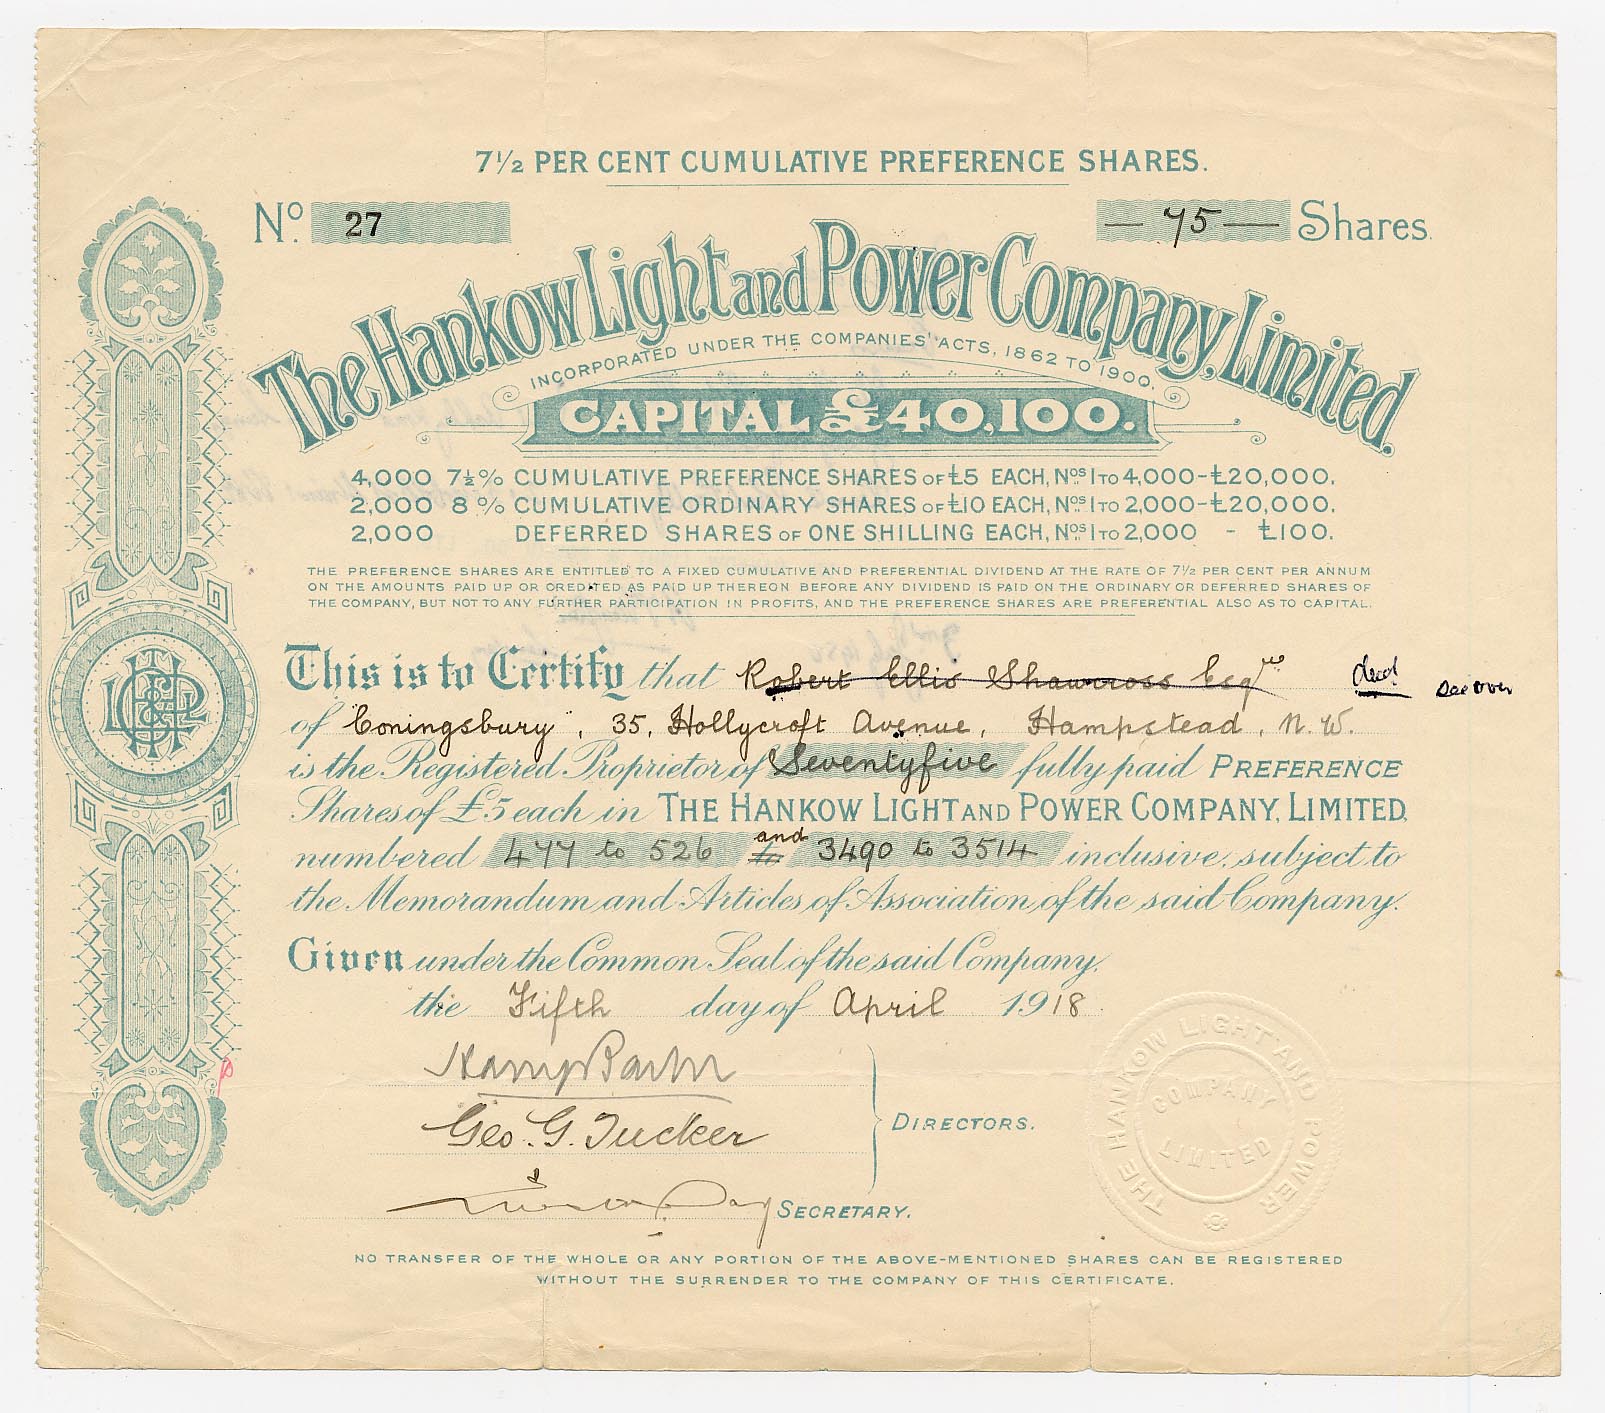 7½ PER CENT CUMULATIVE PREFERENCE SHARES.
No. 27 — 75 — Shares.
The Hankow Light and Power Company, Limited.
INCORPORATED UNDER THE COMPANIES' ACTS, 1862 TO 1900.
CAPITAL £40,100.
4,000 7½% CUMULATIVE PREFERENCE SHARES OF £5 EACH, Nos 1 TO 4,000-£20,000.
2,000 8% CUMULATIVE ORDINARY SHARES OF £10 EACH, Nos 1 TO 2,000-£20,000.
2,000 DEFERRED SHARES OF ONE SHILLING EACH, Nos 1 TO 2,000 - £100.
THE PREFERENCE SHARES ARE ENTITLED TO A FIXED CUMULATIVE AND PREFERENTIAL DIVIDEND AT THE RATE OF 7½ PER CENT PER ANNUM
ON THE AMOUNTS PAID UP OR CREDITED AS PAID UP THEREON BEFORE ANY DIVIDEND IS PAID ON THE ORDINARY OR DEFERRED SHARES OF
THE COMPANY, BUT NOT TO ANY FURTHER PARTICIPATION IN PROFITS, AND THE PREFERENCE SHARES ARE PREFERENTIAL ALSO AS TO CAPITAL.
This is to Certify that Robert Ellis Shawcross Esqre decd see over
of "Coningsbury", 35, Hollycroft Avenue, Hampstead, N.W.
is the Registered Proprietor of Seventyfive fully paid PREFERENCE
Shares of £5 each in THE HANKOW LIGHT AND POWER COMPANY, LIMITED,
numbered 477 to 526 to and 3490 to 3514 inclusive, subject to
the Memorandum and Articles of Association of the said Company.
Given under the Common Seal of the said Company,
the Fifth day of April 1918
Geo. G. Tucker
DIRECTORS.
SECRETARY.
THE HANKOW LIGHT AND POWER
COMPANY
LIMITED
NO TRANSFER OF THE WHOLE OR ANY PORTION OF THE ABOVE-MENTIONED SHARES CAN BE REGISTERED
WITHOUT THE SURRENDER TO THE COMPANY OF THIS CERTIFICATE.